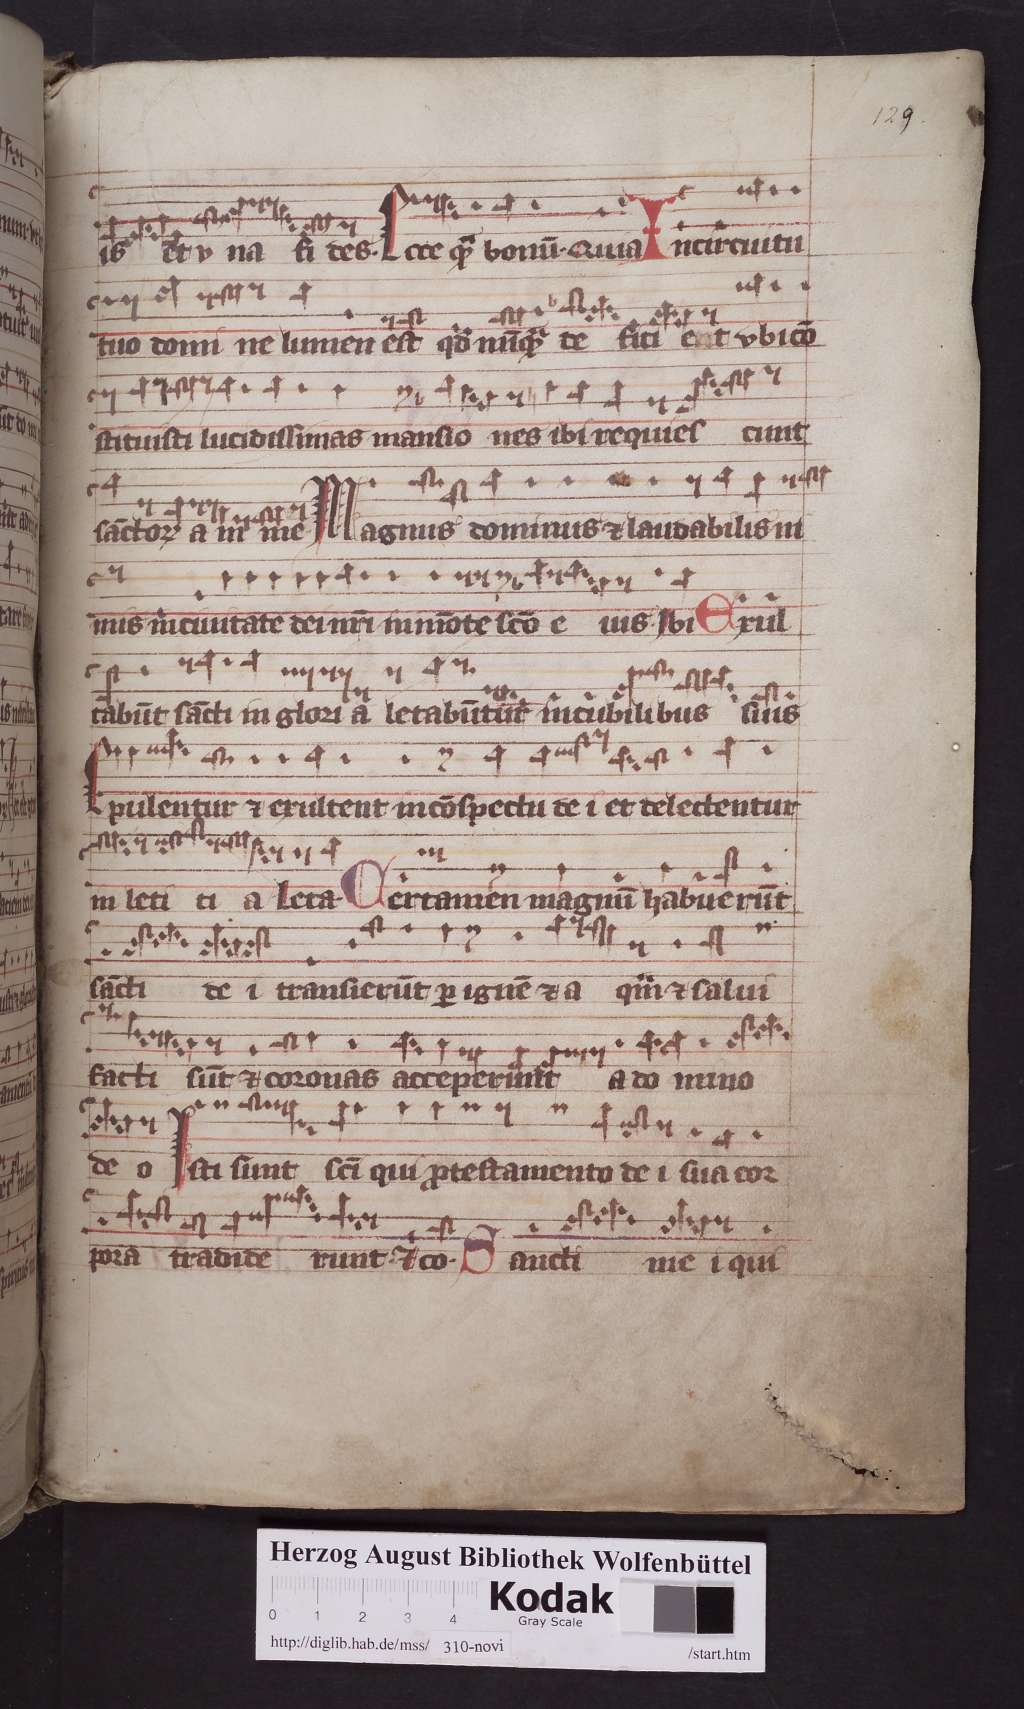 129.
is et v na fi des. Ecce qͣ bonū. Quia Incircuitu
tuo domi ne lumen est qd̄ nūqͣ de fici et vbi cō
stituisti lucidissimas mansio nes ibi requies cunt
sāctorꝝ a nī me Magnus dominus ⁊ laudabilis ni
mis in ciuitate dei nrī in mōte scō e ius. Ibi Exul
tabūt sācti in glori a letabūtur in cubilibus suis
Epulentur ⁊ exultent in cōspectu de i et delectentur
in leti ti a Leta. Certamen magnū habuerūt
sācti de i transierūt ꝑ ignē ⁊ a quā ⁊ salui
facti sūt ⁊ coronas acceperunt a do mino
de o Isti sunt scī qui ꝓ testamento de i sua cor
pora tradide runt. ⁊ co. Sancti me i qui
Herzog August Bibliothek Wolfenbüttel
0 1 2 3 4
Kodak
Gray Scale
http://diglib.hab.de/mss/ 310-novi /start.htm